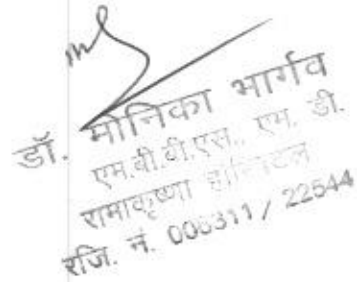 डॉ. मोनिका भार्गव
एम.बी.बी.एस., एम. डी.
रामाकृष्णा हास्पिटल
रजि. नं. 006311 / 22544